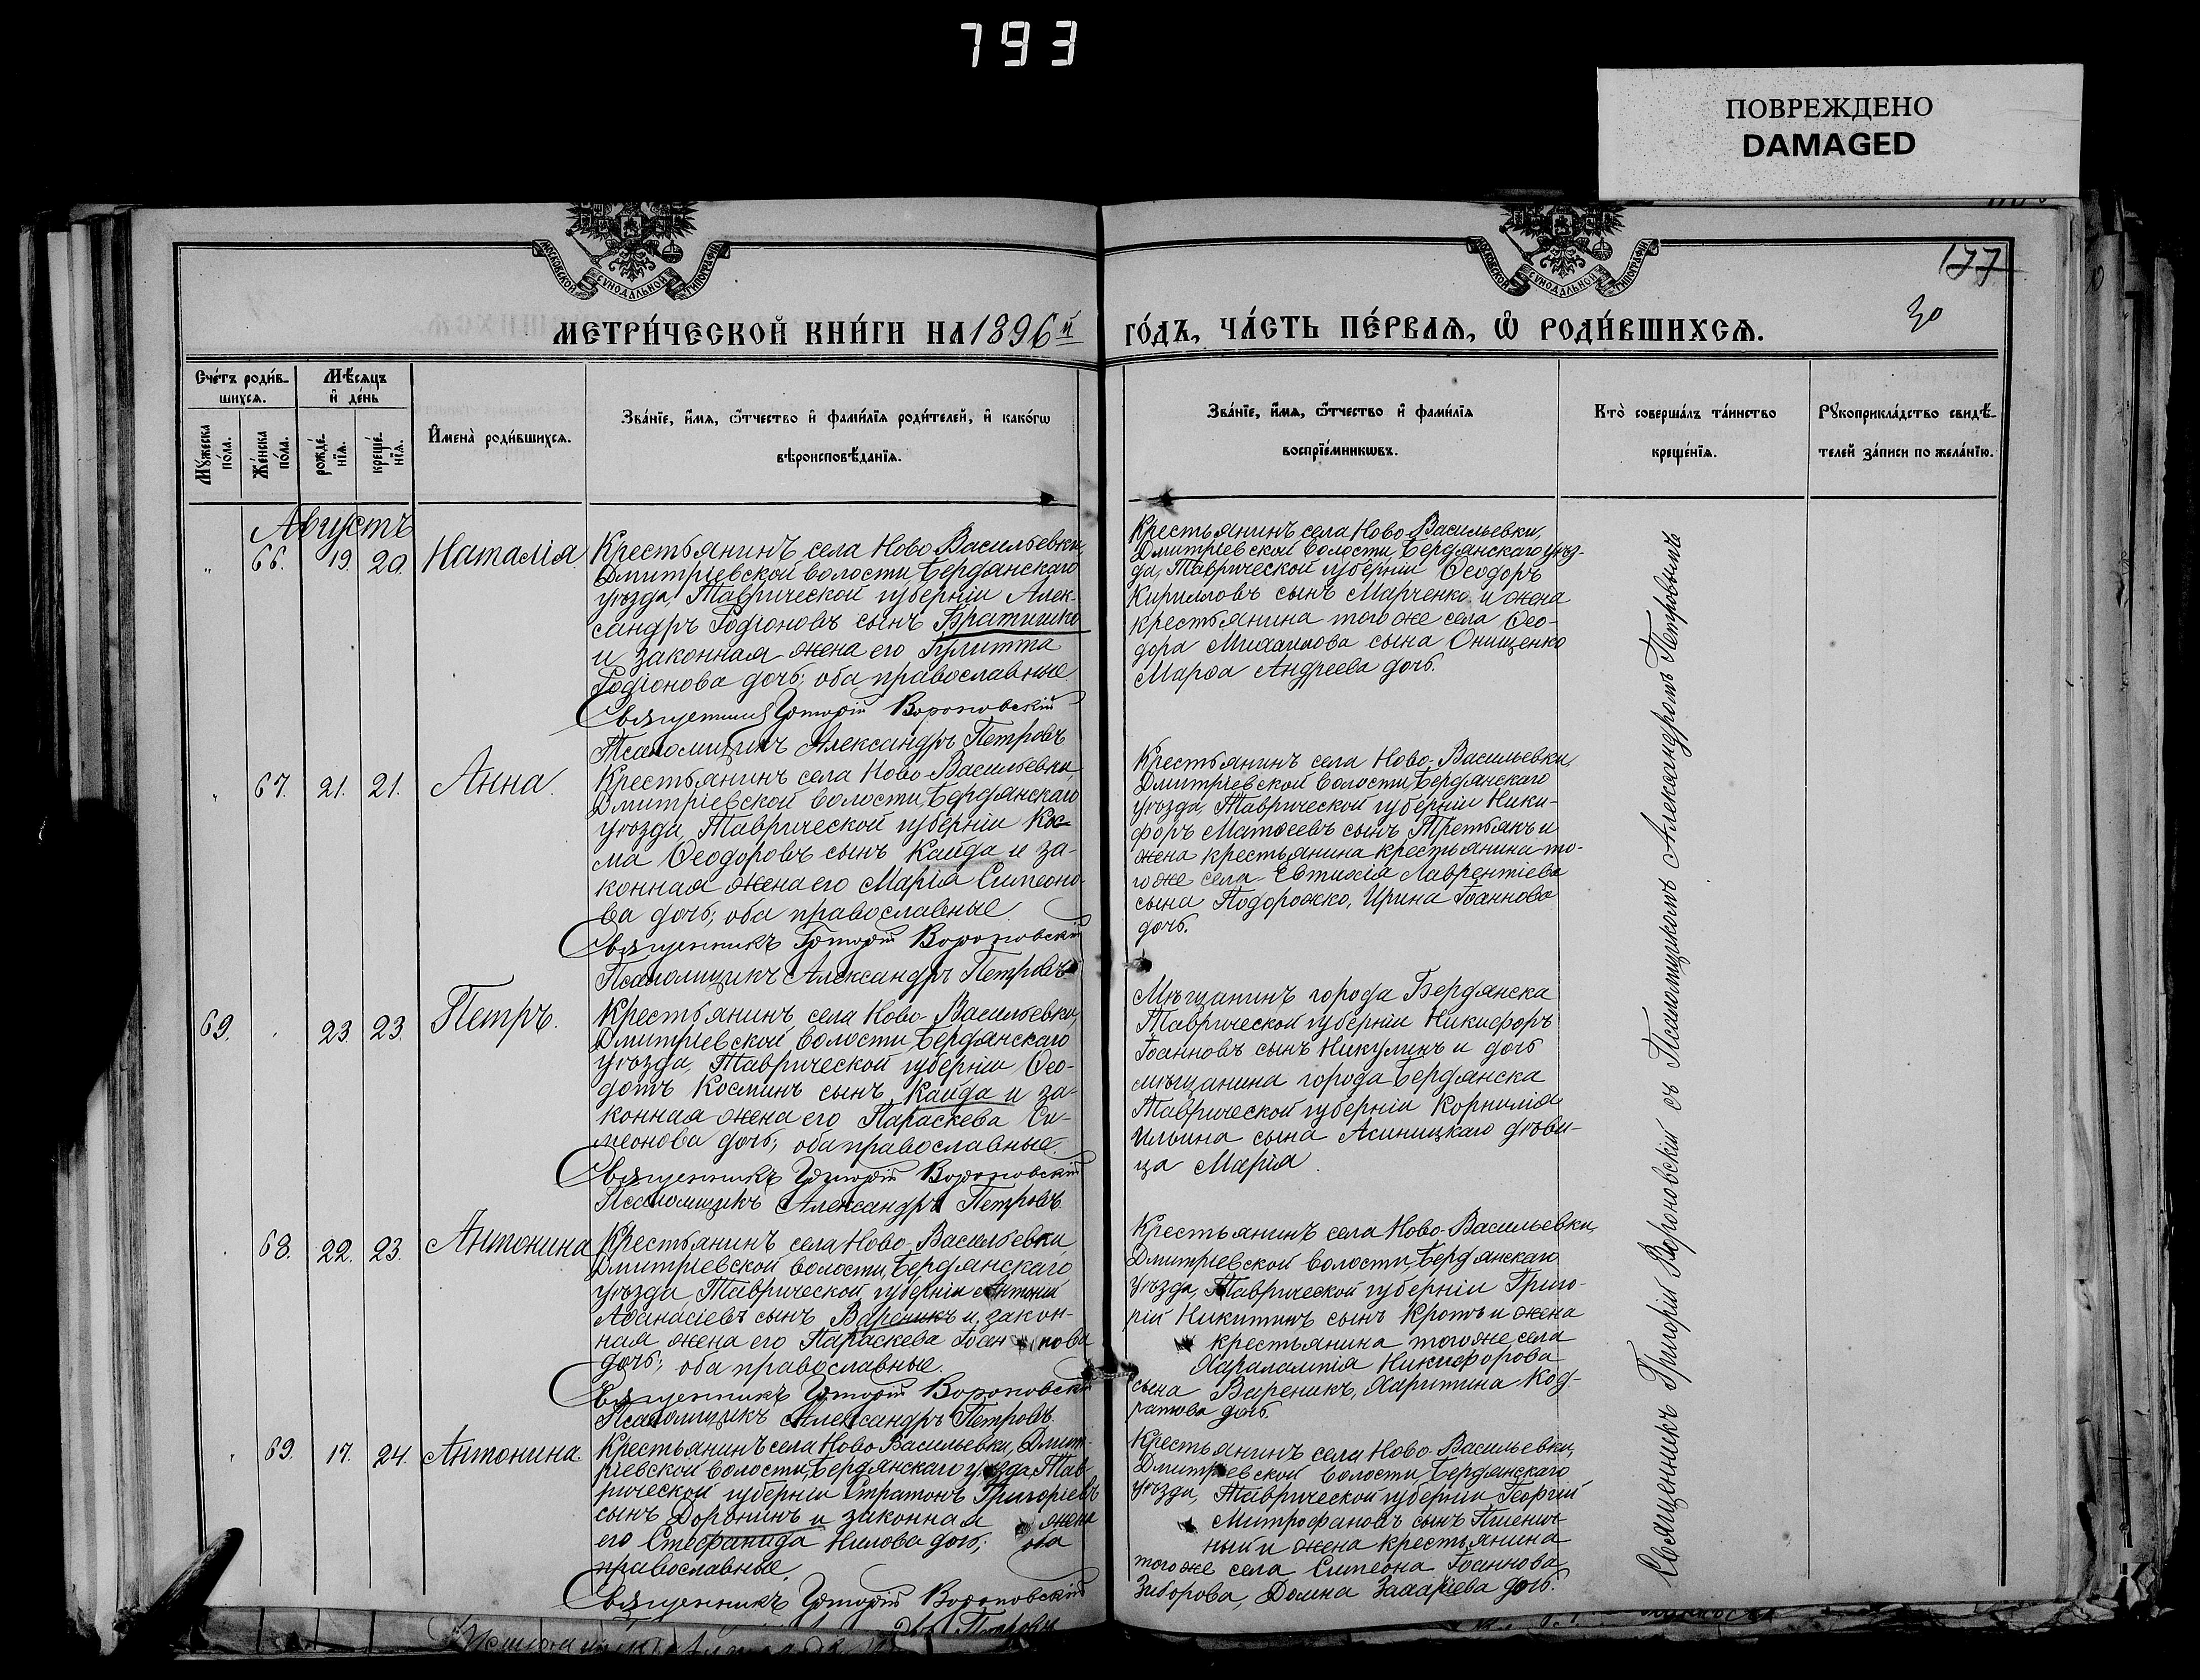 793
ПОВРЕЖДЕНО
DAMAGED
МОСКОВСКОЙ СѴНОДАЛЬНОЙ ТИПОГРАФІИ
МОСКОВСКОЙ СѴНОДАЛЬНОЙ ТИПОГРАФІИ
177
30
МЕТРИ́ЧЕСКОЙ КНИ́ГИ НА 1896й
ГО́ДЪ, ЧА́СТЬ ПЕ́РВАѦ, Ѽ РОДИ́ВШИХСѦ.
Сче́тъ роди́в-
шихсѧ.
Мѣ́сѧцъ
и҆ де́нь
Мꙋ́жеска
по́ла.
Же́нска
по́ла.
рожде́-
нїѧ.
креще́-
нїѧ.
И҆мена̀ роди́вшихсѧ.
Зва́нїе, и҆́мѧ, ѻ҆́тчество и҆ фами́лїѧ роди́телей, и҆ како́гѡ
вѣроисповѣ́данїѧ.
Зва́нїе, и҆́мѧ, ѻ҆́тчество и҆ фами́лїѧ
воспрїе́мникѡвъ.
Кто̀ соверша́лъ та́инство
креще́нїѧ.
Рꙋкоприкла́дство свидѣ́-
телей за́писи по жела́нїю.
Августъ
" 66. 19. 20. Наталія.
Крестьянинъ села Ново Васильевки,
Дмитріевской волости, Бердянскаго
уѣзда, Таврической губерніи Алек-
сандръ Родіоновъ сынъ Братишко
и законная жена его Іулитта
Родіонова дочь; оба православные.
Священникъ Григорій Вороновскій
Псаломщикъ Александръ Петровъ
Крестьянинъ села Ново Васильевки,
Дмитріевской волости, Бердянскаго уѣз-
да, Таврической губерніи Ѳеодоръ
Кирилловъ сынъ Марченко и жена
крестьянина того же села Ѳео-
дора Михаилова сына Онищенко
Марѳа Андреева дочь.
" 67. 21. 21. Анна.
Крестьянинъ села Ново-Васильевки,
Дмитріевской волости, Бердянскаго
уѣзда, Таврической губерніи Кос-
ма Ѳеодоровъ сынъ Кайда и за-
конная жена его Марія Симеоно-
ва дочь; оба православные.
Священникъ Григорій Вороновскій
Псаломщикъ Александръ Петровъ
Крестьянинъ села Ново-Васильевки,
Дмитріевской волости, Бердянскаго
уѣзда, Таврической губерніи Ники-
форъ Матѳеевъ сынъ Третьякъ и
жена крестьянина крестьянина то-
го же села Евтихія Лаврентіева
сына Подорожко, Ирина Іоаннова
дочь.
69. 23. 23. Петръ.
Крестьянинъ села Ново-Васильевки,
Дмитріевской волости, Бердянскаго
уѣзда, Таврической губерніи Ѳео-
дотъ Косминъ сынъ Кайда и за-
конная жена его Параскева Си-
меонова дочь; оба православные.
Священникъ Григорій Вороновскій
Псаломщикъ Александръ Петровъ.
Мѣщанинъ города Бердянска
Таврической губерніи Никифоръ
Іоанновъ сынъ Никулинъ и дочь
мѣщанина города Бердянска
Таврической губерніи Корнилія
Ильина сына Асиницкаго дѣви-
ца Марія.
68. 22. 23. Антонина
Крестьянинъ села Ново-Васильевки
Дмитріевской волости, Бердянскаго
уѣзда Таврической губерніи Антоній
Аѳанасіевъ сынъ Вареникъ и закон-
ная жена его Параскева Іоаннова
дочь; оба православные.
Священникъ Григорій Вороновскій
Псаломщикъ Александръ Петровъ.
Крестьянинъ села Ново-Васильевки,
Дмитріевской волости, Бердянскаго
уѣзда, Таврической губерніи Григо-
рій Никитинъ сынъ Кротъ и жена
крестьянина того же села
Харалампія Никифорова
сына Вареникъ, Харитина Код-
ратова дочь.
69. 17. 24. Антонина.
Крестьянинъ села Ново Васильевки, Дмит-
ріевской волости, Бердянскаго уѣзда, Тав-
рической губерніи Стратонъ Григоріевъ
сынъ Доронинъ и законная жена
его Стефанида Нилова дочь; оба
православные.
Священникъ Григорій Вороновскій
Крестьянинъ села Ново-Васильевки,
Дмитріевской волости, Бердянскаго
уѣзда, Таврической губерніи Георгій
Митрофановъ сынъ Пшенич-
ный и жена крестьянина
того же села Симеона Іоаннова
Зиборова, Домна Захаріева дочь.
Священникъ Григорій Вороновскій съ Псаломщикомъ Александромъ Петровымъ